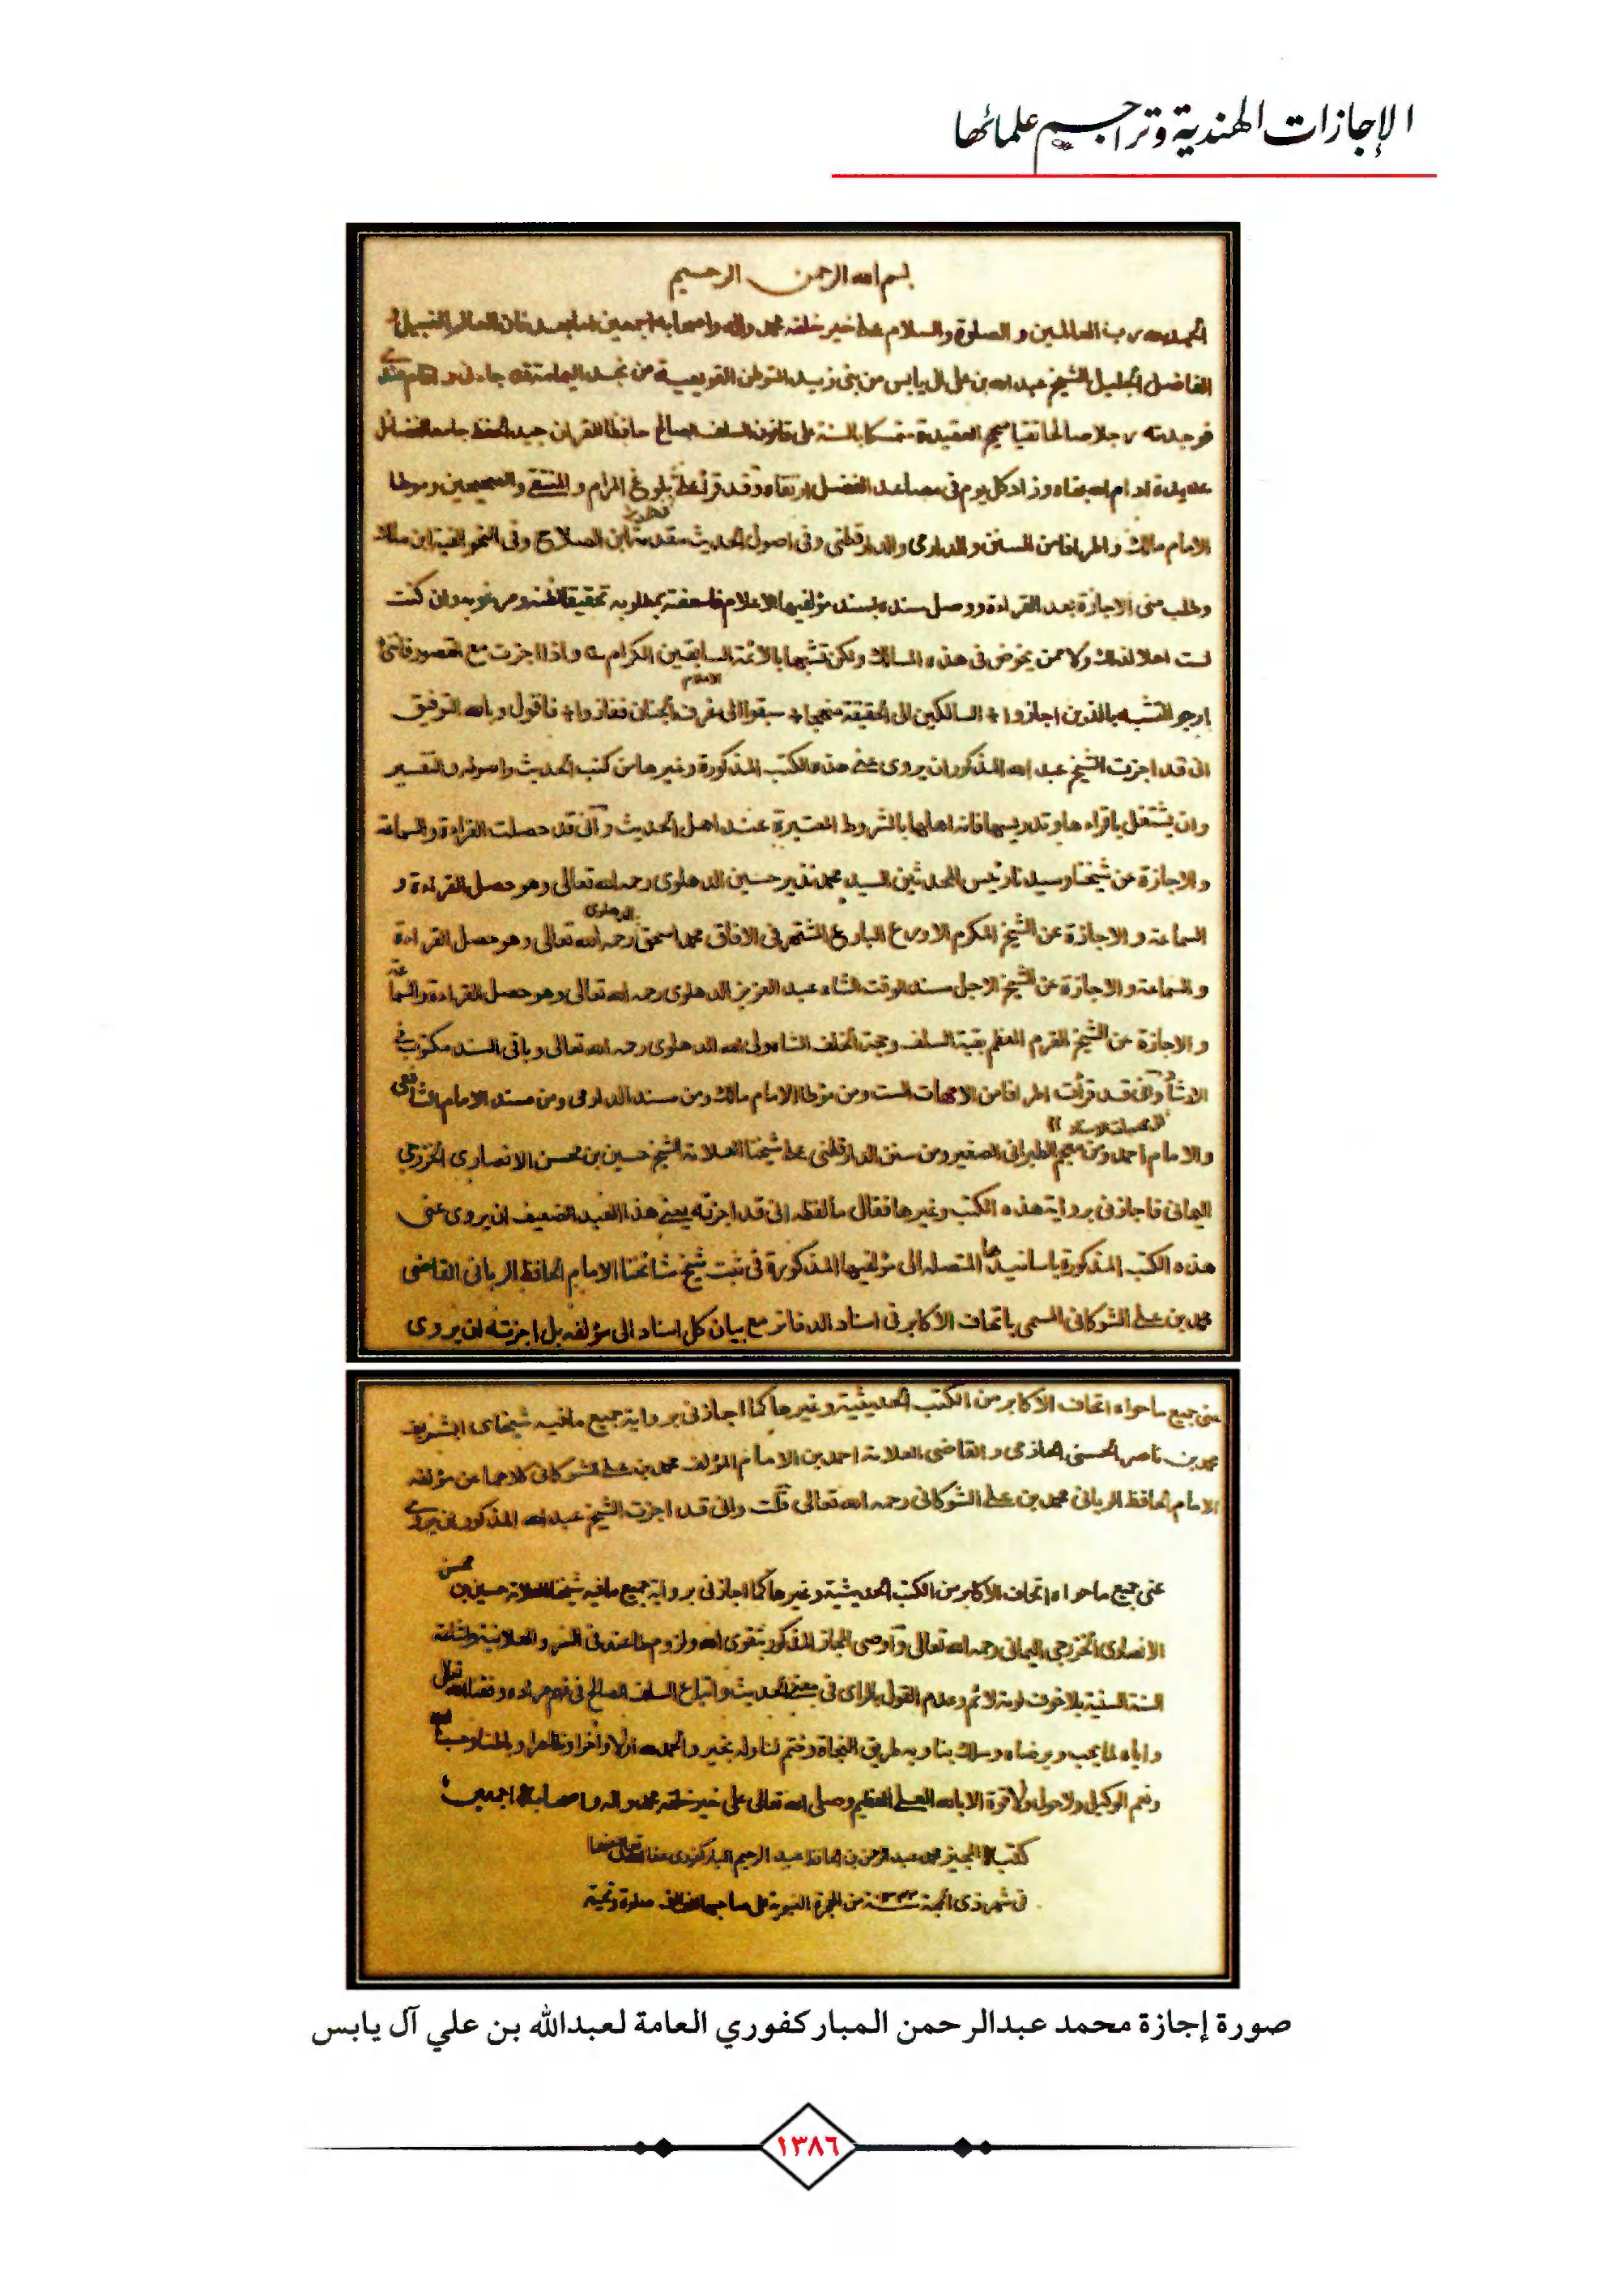 الإجازات الهندية وتراجم علمائها
بسم الله الرحمن الرحيم
الحمد لله رب العالمين والصلوة والسلام على خير خلقه محمد واله واصحابه اجمعين اما بعد فان العالم النبيل و
الفاضل الجليل الشيخ عبد الله بن علي ال يابس من بني زيد المتوطن القويعية من نجد اليمامة قد جاءني واقام عندي
فوجدته رجلا صالحا تقيا صحيح العقيدة متمسكا بالسنة على قانون السلف الصالح حافظا للقران جيد الحفظ جامع الفضائل
عديدة ادام الله بقاه وزاد كل يوم في مصاعد الفضل ارتقاه وقد قرأ علي بلوغ المرام و المنتقى والصحيحين وموطا
الامام مالك واطرافا من السنن والدارمي والدارقطني وفي اصول الحديث مقدمة ابن الصلاح وفي النحو الفية ابن مالك
وطلب مني الاجازة بعد القراءة ووصل سنده بسند مؤلفيها الاعلام فاسعفته بمطلوبه تحقيقا لظنه ومرغوبه وان كنت
لست اهلا لذلك ولا ممن يخوض في هذه المسالك ولكن تشبها بالائمة السابقين الكرام واذا اجزت مع القصور فانني
ارجو التشبه بالذين اجازوا السالكين الى الحقيقة منهجا سبقوا الى غرف الجنان ففازوا فاقول وبالله التوفيق
اني قد اجزت الشيخ عبد الله المذكور ان يروي عني هذه الكتب المذكورة وغيرها من كتب الحديث واصوله والتفسير
وان يشتغل باقراءها وتدريسها فانه اهلها بالشروط المعتبرة عند اهل الحديث واني قد حصلت القراءة والسماعة
والاجازة عن شيخنا وسيدنا رئيس المحدثين السيد محمد نذير حسين الدهلوي رحمه الله تعالى وهو حصل القراءة و
السماعة والاجازة عن الشيخ المكرم الاورع البارع المشتهر في الافاق محمد اسحق الدهلوي رحمه الله تعالى وهو حصل القراءة
والسماعة والاجازة عن الشيخ الاجل مسند الوقت الشاه عبد العزيز الدهلوي رحمه الله تعالى وهو حصل القراءة والسماعة
والاجازة عن الشيخ القرم المعظم بقية السلف وحجة الخلف الشاه ولي الله الدهلوي رحمه الله تعالى وباقي السند مكتوب في
الارشاد واني قد قرأت اطرافا من الامهات الست ومن موطا الامام مالك ومن مسند الدارمي ومن مسند الامام الشافعي
والامام احمد ومن معجم الطبراني الصغير ومن سنن الدارقطني على شيخنا العلامة الشيخ حسين بن محسن الانصاري الخزرجي
اليماني فاجازني برواية هذه الكتب وغيرها فقال ما لفظه اني قد اجزته يعني هذا العبد الضعيف ان يروي عني
هذه الكتب المذكورة باسانيدها المتصلة الى مؤلفيها المذكورة في ثبت شيخ مشائخنا الامام الحافظ الرباني القاضي
محمد بن علي الشوكاني المسمى باتحاف الأكابر في اسناد الدفاتر مع بيان كل اسناد الى مؤلفه بل اجزته ان يروي
عني جميع ما حواه اتحاف الاكابر من الكتب الحديثية وغيرها كما اجازني برواية جميع ما فيه شيخاي الشريف
محمد بن ناصر الحسني الحازمي والقاضي العلامة احمد بن الامام المؤلف محمد بن علي الشوكاني كلاهما عن مؤلفه
الامام الحافظ الرباني محمد بن علي الشوكاني رحمه الله تعالى قلت واني قد اجزت الشيخ عبد الله المذكور ان يروي
عني جميع ما حواه اتحاف الاكابر من الكتب الحديثية وغيرها كما اجازني برواية جميع ما فيه شيخنا العلامة حسين بن محسن
الانصاري الخزرجي اليماني رحمه الله تعالى وأوصي المجاز المذكور بتقوى الله ولزوم طاعته في السر والعلانية واشاعة
السنة السنية بلا خوف لومة لائم وعدم القول بالراي في معنى الحديث واتباع السلف الصالح في فهم مراده وفقنا الله تعالى
واياه لما يحب ويرضاه وسلك بنا وبه طريق النجاة وختم لنا وله بخير والحمد لله اولا واخرا وظاهرا وباطنا وحسبنا الله
ونعم الوكيل ولا حول ولا قوة الا بالله العلي العظيم وصلى الله تعالى على خير خلقه محمد واله واصحابه اجمعين
كتبه المجيز محمد عبد الرحمن بن الحافظ عبد الرحيم المباركفوري عفا الله تعالى عنهما
في شهر ذي الحجة سنة من الهجرة النبوية على صاحبها الف الف صلوة وتحية
صورة إجازة محمد عبدالرحمن المباركفوري العامة لعبدالله بن علي آل يابس
١٣٨٦